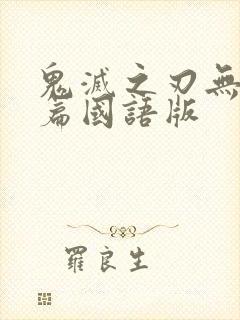 鬼滅之刃無
篇國語版
羅良生